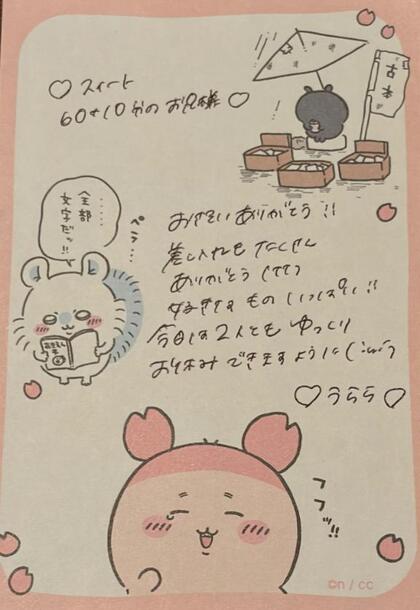 ♡ スィート
60+10分の お兄様 ♡
古本
……
全部
文字だッ!!
ペラ…
お会い ありがとう!!
差し入れも たくさん
ありがとう
好きな もの いっぱい!!
今日は2人とも ゆっくり
お休み できますように
♡ うらら ♡
フフッ!!
©n / cc